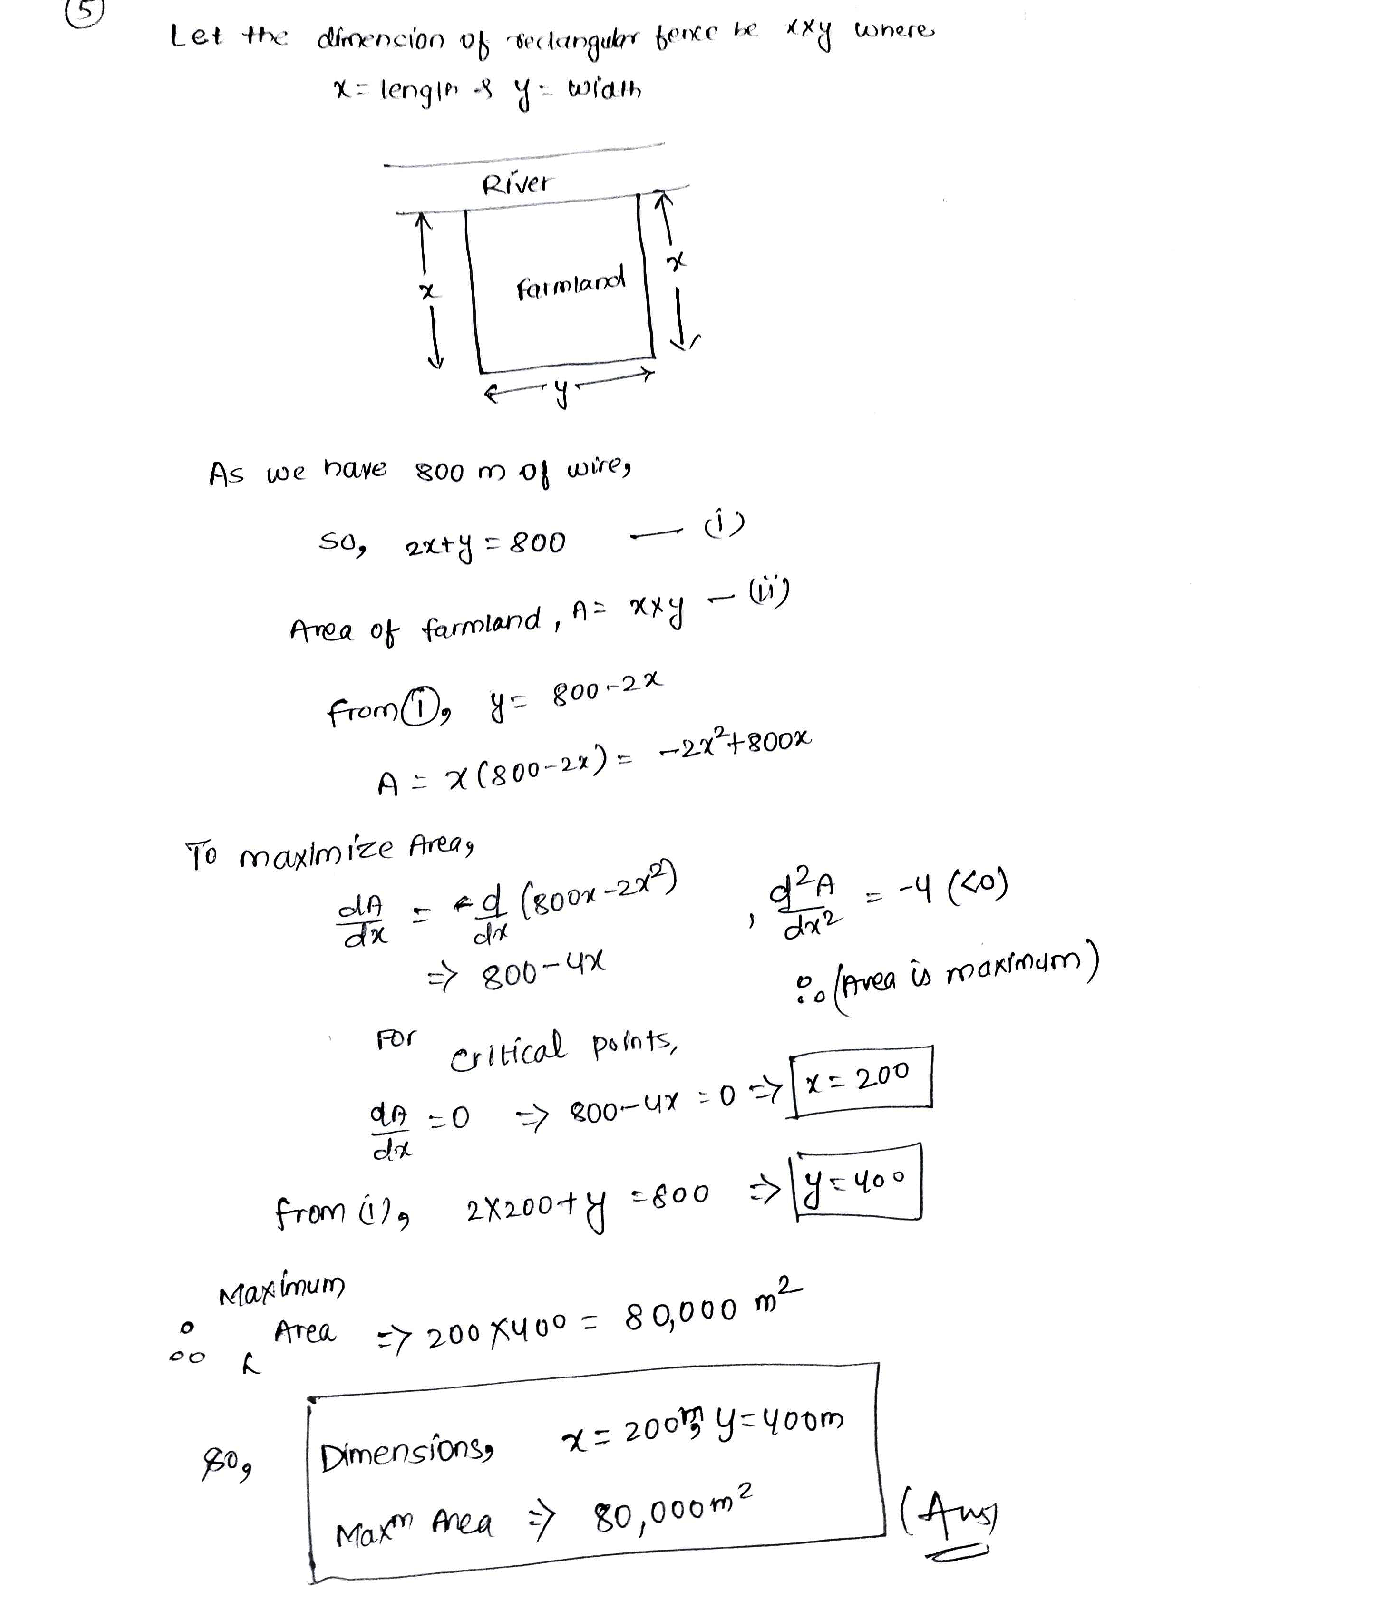 5
Let the dimencion of rectangular fence be x×y where
x = length & y = width
River
x
Farmland
x
y
As we have 800 m of wire,
so, 2x+y = 800 — (i)
Area of farmland, A = x×y — (ii)
from (i), y = 800-2x
A = x(800-2x) = -2x²+800x
To maximize Area,
dA/dx = d/dx (800x-2x²) , d²A/dx² = -4 (<0)
⇒ 800-4x ∴ (Area is maximum)
For critical points,
dA/dx = 0 ⇒ 800-4x = 0 ⇒ x = 200
from (i), 2×200+y = 800 ⇒ y = 400
Maximum
∴ Area ⇒ 200×400 = 80,000 m²
So, Dimensions, x = 200m, y = 400m
Maxm Area ⇒ 80,000 m² (Ans)